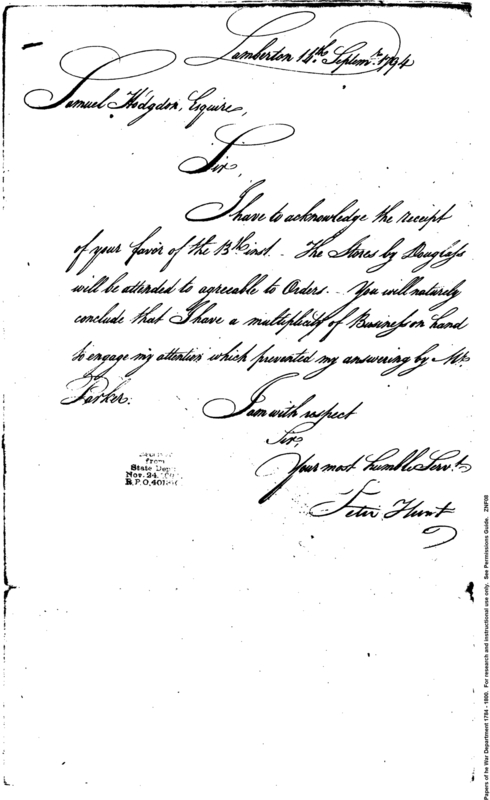 Lamberton 14th. Septemr. 1794
Samuel Hodgdon, Esquire,
Sir,
I have to acknowledge the receipt
of your favor of the 13th inst. The Stores by Douglass
will be attended to agreeable to Orders. You will naturely
conclude that I have a multiplicity of Business on hand
to engage my attention which prevented my answering by Mr.
Parker.
I am with respect
Sir,
Your most humble Servt.
Peter Hunt
from
State Dept
Nov. 24,
Papers of he War Department 1784 - 1800. For research and instructional use only. See Permissions Guide. ZNF08